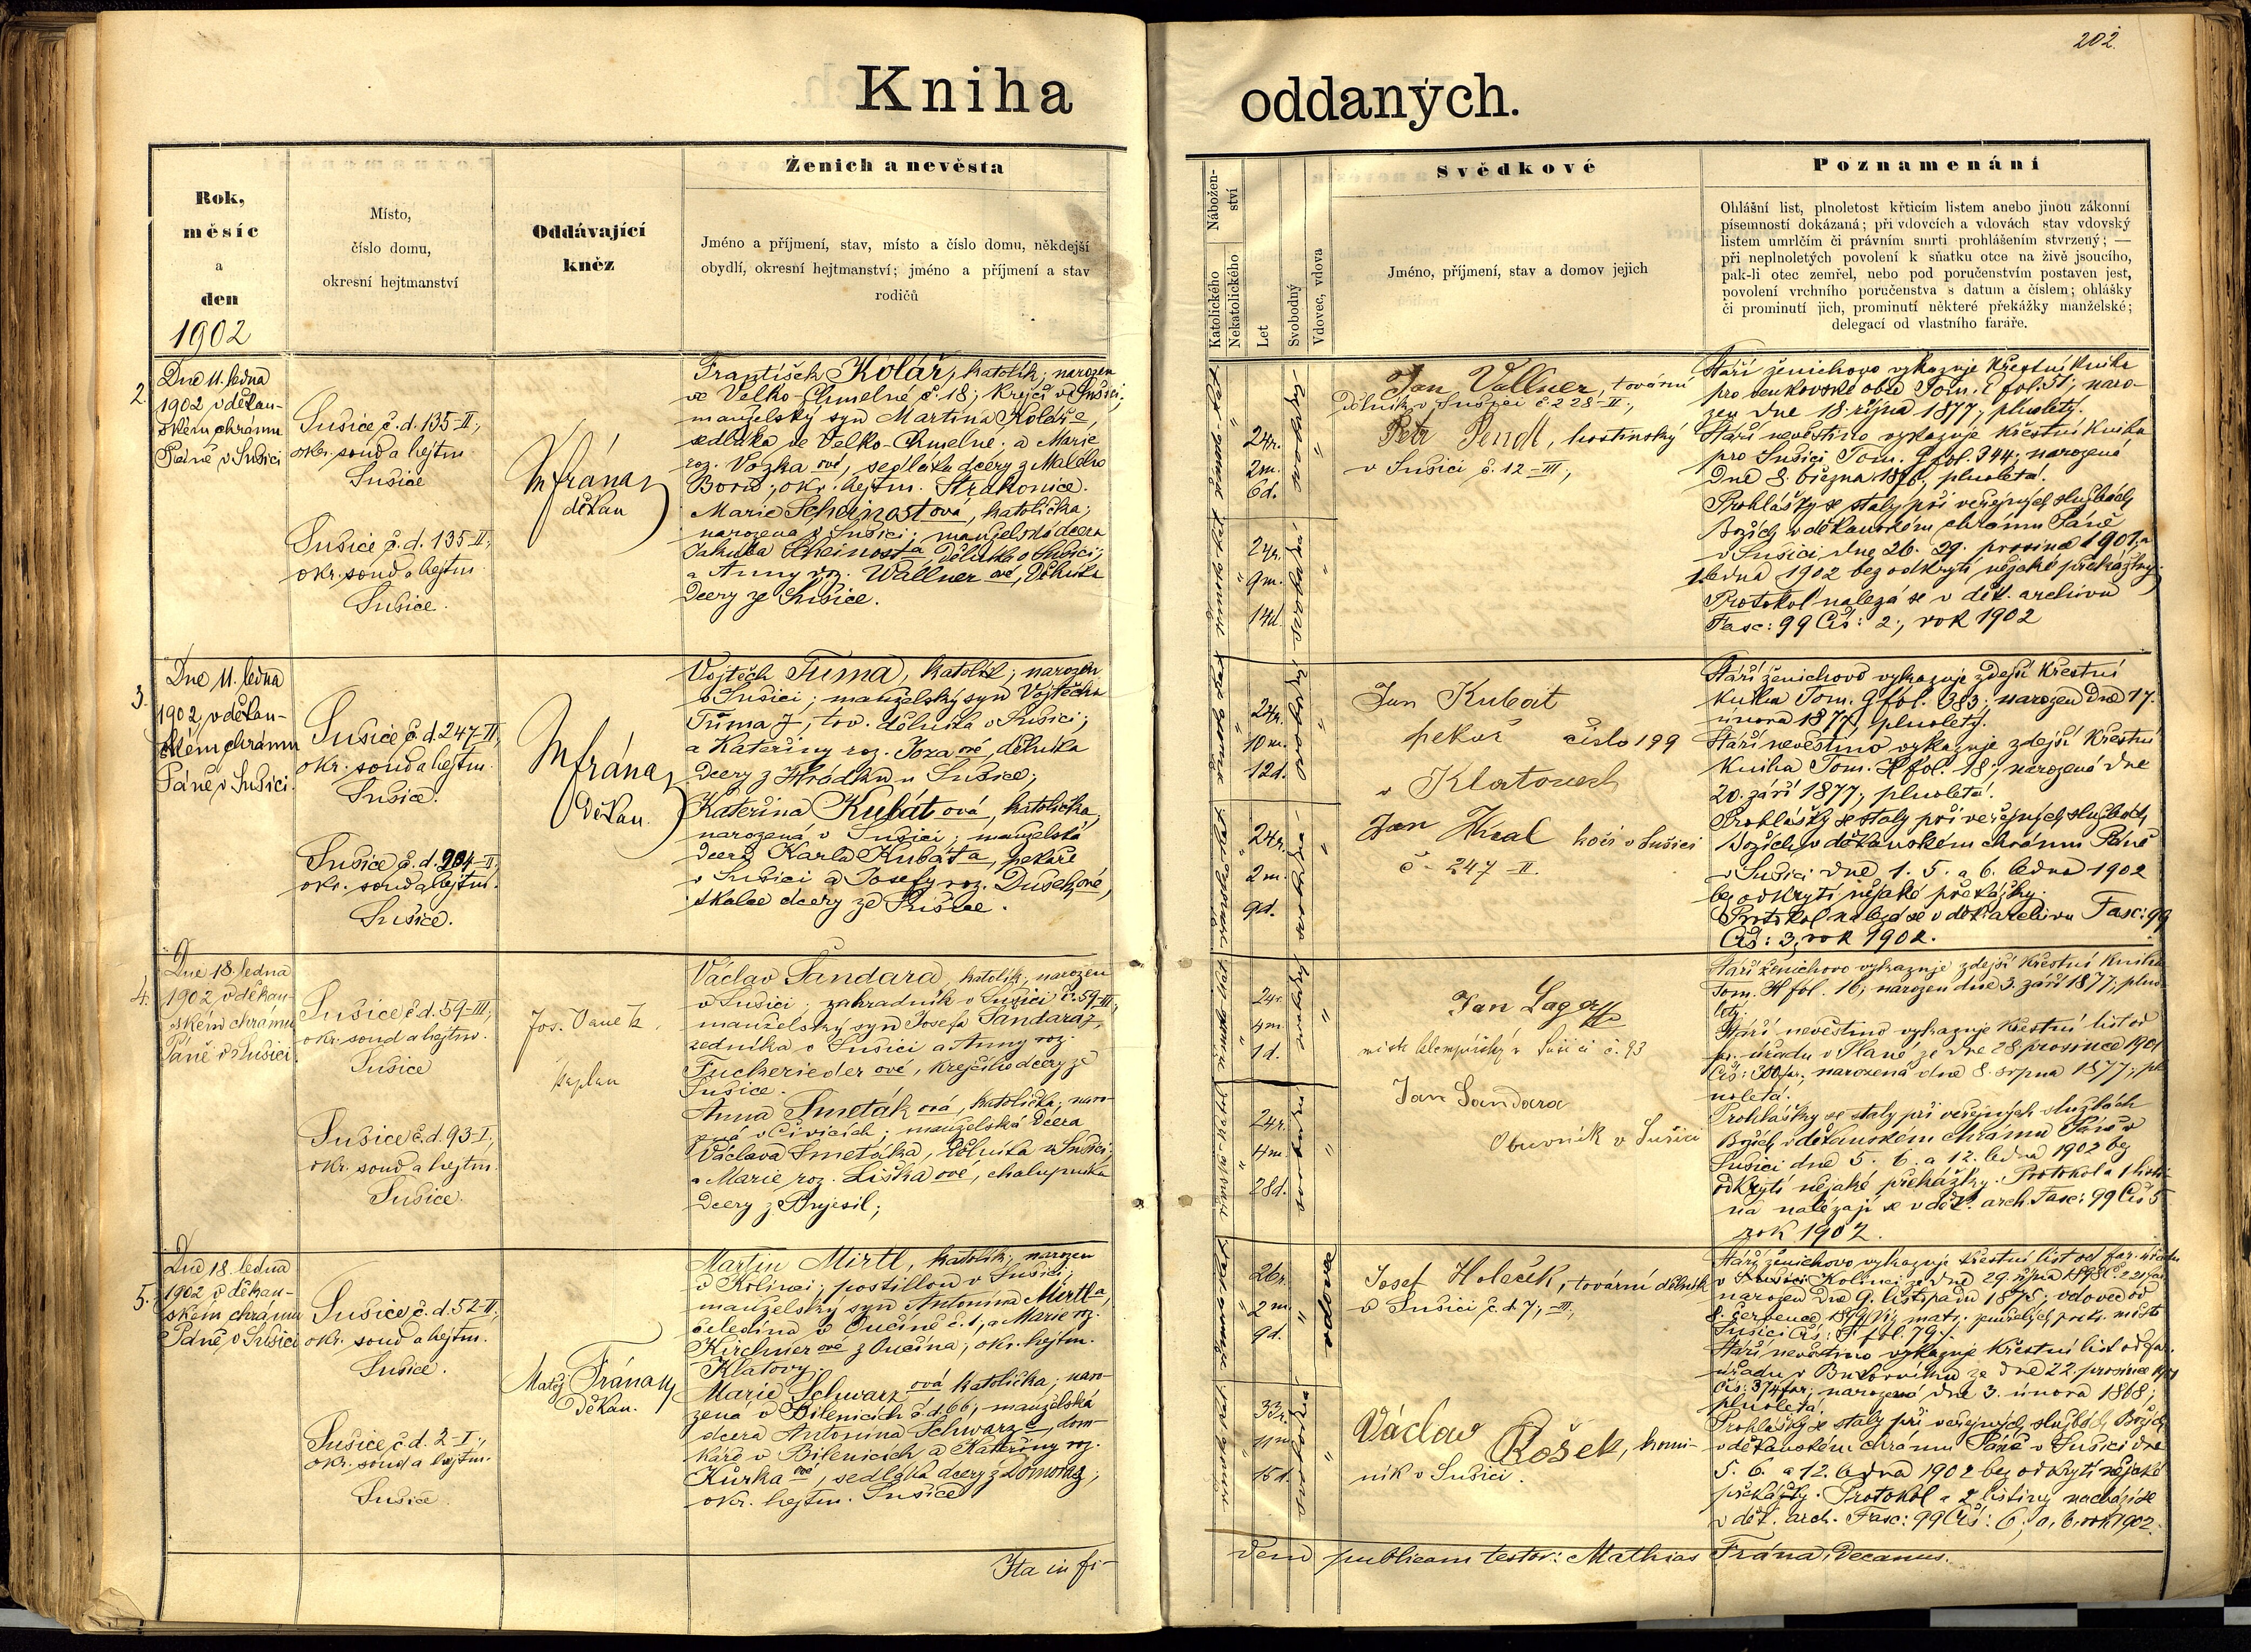 202.
Kniha oddaných.
Rok,
měsíc
a
den
1902
Místo,
číslo domu,
okresní hejtmanství
Oddávající
kněz
Ženich a nevěsta
Jméno a příjmení, stav, místo a číslo domu, někdejší
obydlí, okresní hejtmanství; jméno a příjmení a stav
rodičů
Nábožen-
ství
Katolického
Nekatolického
Let
Svobodný
Vdovec, vdova
Svědkové
Jméno, příjmení, stav a domov jejich
Poznamenání
Ohlášní list, plnoletost křticím listem anebo jinou zákonní
písemností dokázaná; při vdovcích a vdovách stav vdovský
listem umrlčím či právním smrti prohlášením stvrzený; —
při neplnoletých povolení k sňatku otce na živě jsoucího,
pak-li otec zemřel, nebo pod poručenstvím postaven jest,
povolení vrchního poručenstva s datum a číslem; ohlášky
či prominutí jich, prominutí některé překážky manželské;
delegací od vlastního faráře.
2.
Dne 11. ledna
1902 v děkan-
ském chrámu
Páně v Sušici
Sušice č. d. 135-II;
okr. soud a hejtm
Sušice
Sušice č. d. 135-II;
okr. soud a hejtm
Sušice.
MFrána
děkan
František Kolář, katolík; narozen
ve Velko-Chmelné č. 18; krejčí v Sušici;
manželský syn Martina Koláře,
sedláka ve Velko-Chmelné a Marie
roz. Vozka ové, sedláka dcery z Malého
Boru, okr. hejtm. Strakonice.
Marie Scheinost ová, katolička;
narozena v Sušici; manželská dcera
Jakuba Scheinosta, dělníka v Sušici;
a Anny roz. Wallner ové, dělníka
dcery ze Sušice.
24r.
2m.
6d.
24r.
9m.
14d.
Jan Vallner, tovární
dělník v Sušici č. 228-II;
Petr Pendl, hostinský
v Sušici č. 12-III;
Stáří ženichovo vykazuje křestní kniha
narozen dne 18. října 1877; plnoletý.
Stáří nevěstino vykazuje křestní kniha
pro Sušici Tom. G fol. 344; narozená
dne 8. března 1876, plnoletá.
Prohlášky se staly při veřejných službách
Božích v děkanském chrámu Páně
v Sušici dne 26. 29. prosince 1901 a
1. ledna 1902 bez odkrytí nějaké překážky.
Protokol nalezá se v děk. archivu
Fasc: 99 Čís: 2; rok 1902
3.
Dne 11. ledna
1902, v děkan-
ském chrámu
Páně v Sušici.
Sušice č. d. 247-II;
okr. soud a hejtm.
Sušice.
Sušice č. d. 204-II;
okr. soud a hejtm.
Sušice.
MFrána
děkan.
Vojtěch Tůma, katolík; narozen
v Sušici; manželský syn Vojtěcha
Tůma, tov. dělníka v Sušici;
a Kateřiny roz. Joza ové, dělníka
dcery z Hrádku u Sušice;
Kateřina Kubát ová, katolička,
narozená v Sušici; manželská
dcera Karla Kubáta, pekaře
v Sušici a Josefy roz. Dušek ové,
skalce dcery ze Sušice.
24r.
10m.
12d.
24r.
2m.
9d.
Jan Kubát
pekař číslo 199
v Klatovech
Jan Kral kočí v Sušici
č. 247-II.
Stáří ženichovo vykazuje zdejší křestní
kniha Tom. G fol. 383; narozen dne 17.
února 1877, plnoletý.
Stáří nevěstino vykazuje zdejší křestní
kniha Tom. H fol. 18; narozená dne
20. září 1877; plnoletá.
Prohlášky se staly při veřejných službách
Božích v děkanském chrámu Páně
v Sušici dne 1. 5. a 6. ledna 1902
bez odkrytí nějaké překážky.
Protokol nalezá se v děk. archivu Fasc: 99
Čís: 3; rok 1902.
4.
Dne 18. ledna
1902, v děkan-
ském chrámu
Páně v Sušici.
Sušice č. d. 59-III;
okr. soud a hejtm.
Sušice
Sušice č. d. 93-I;
okr. soud a hejtm.
Sušice.
Jos. Vaněk
kaplan
Václav Šandara, katolík, narozen
v Sušici; zahradník v Sušici č. 59-III;
manželský syn Josefa Šandara,
zedníka v Sušici a Anny roz.
Fuckerieder ové, krejčího dcery ze
Sušice.
Anna Smeták ová, katolička; naro-
zená v Čivicích; manželská dcera
Václava Smetáka, dělníka v Sušici;
a Marie roz. Liška ové, chalupníka
dcery z Brjesil;
24r.
4m.
1d.
24r.
4m.
28d.
Jan Lager
mistr klempířský v Sušici č. 93
Jan Šandara
Obuvník v Sušici
Stáří ženichovo vykazuje zdejší křestní kniha
Tom. H fol. 16; narozen dne 3. září 1877; plno-
letý.
Stáří nevěstino vykazuje křestní list od
far. úřadu v Plané ze dne 28. prosince 1901
Čís: 300 far.; narozená dne 8. srpna 1877; pl-
noletá.
Prohlášky se staly při veřejných službách
Božích v děkanském chrámu Páně v
Sušici dne 5. 6. a 12. ledna 1902 bez
odkrytí nějaké překážky. Protokol a 1 listi-
na nalézají se v děk. arch. Fasc: 99 Čís 5
rok 1902.
5.
Dne 18. ledna
1902 v děkan-
ském chrámu
Páně v Sušici
Sušice č. d. 52-II;
okr. soud a hejtm.
Sušice.
Sušice č. d. 2-I;
okr. soud a hejtm.
Sušice.
Matěj Frána
děkan.
Martin Mirtl, katolík, narozen
v Kolinci; postillon v Sušici;
manželský syn Antonína Mirtla,
čeledína v Oučíně č. 1, a Marie roz.
Kirchner ové z Oučína, okr. hejtm.
Klatovy.
Marie Schwarz ová katolička; naro-
zená v Bílenicích č. d. 66; manželská
dcera Antonína Schwarze, dom-
káře v Bílenicích a Kateřiny roz.
Kůrka ové, sedláka dcery z Domoraz;
okr. hejtm. Sušice
26r.
2m.
9d.
vdovec
33r.
11m.
15d.
Josef Holeček, tovární dělník
v Sušici č. d. 7; -III;
Václav Rošek, komi-
ník v Sušici.
Stáří ženichovo vykazuje křestní list od far. úřadu
narozen dne 9. listopadu 1875; vdovec od
Stáří nevěstino vykazuje křestní list od far.
úřadu v Bukovníku ze dne 22. prosince 1901
Čís: 374 far; narozená dne 3. února 1868;
plnoletá.
Prohlášky se staly při veřejných službách Božích
v děkanském chrámu Páně v Sušici dne
5. 6. a 12. ledna 1902 bez odkrytí nějaké
překážky. Protokol a 2 listiny nachází se
v děk. arch. Fasc: 99 Čís: 6; a, b, rok 1902.
Ita in fi-
dem publicam testor: Mathias Frána, Decanus.